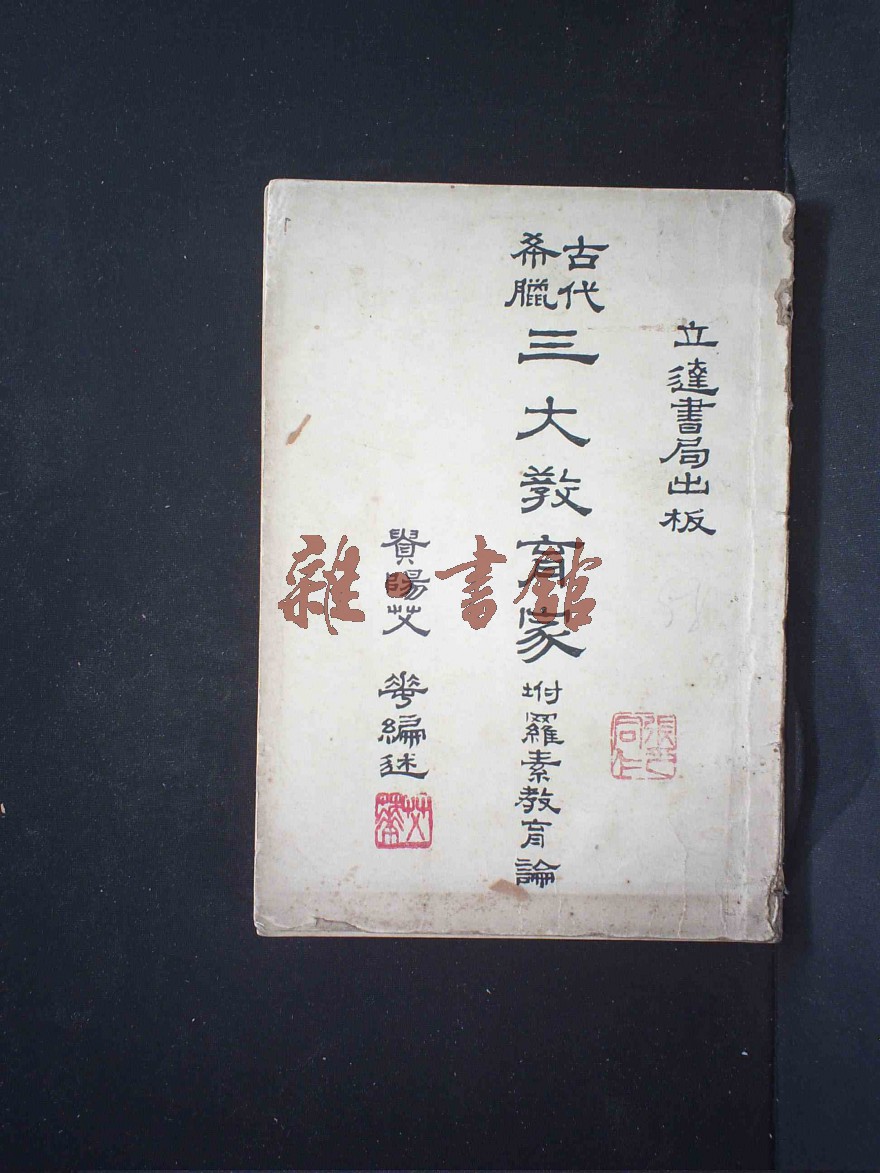 立達書局出板
古代
希臘
三大教育家
坿羅素教育論
貴陽艾華編述
艾華
雜·書館